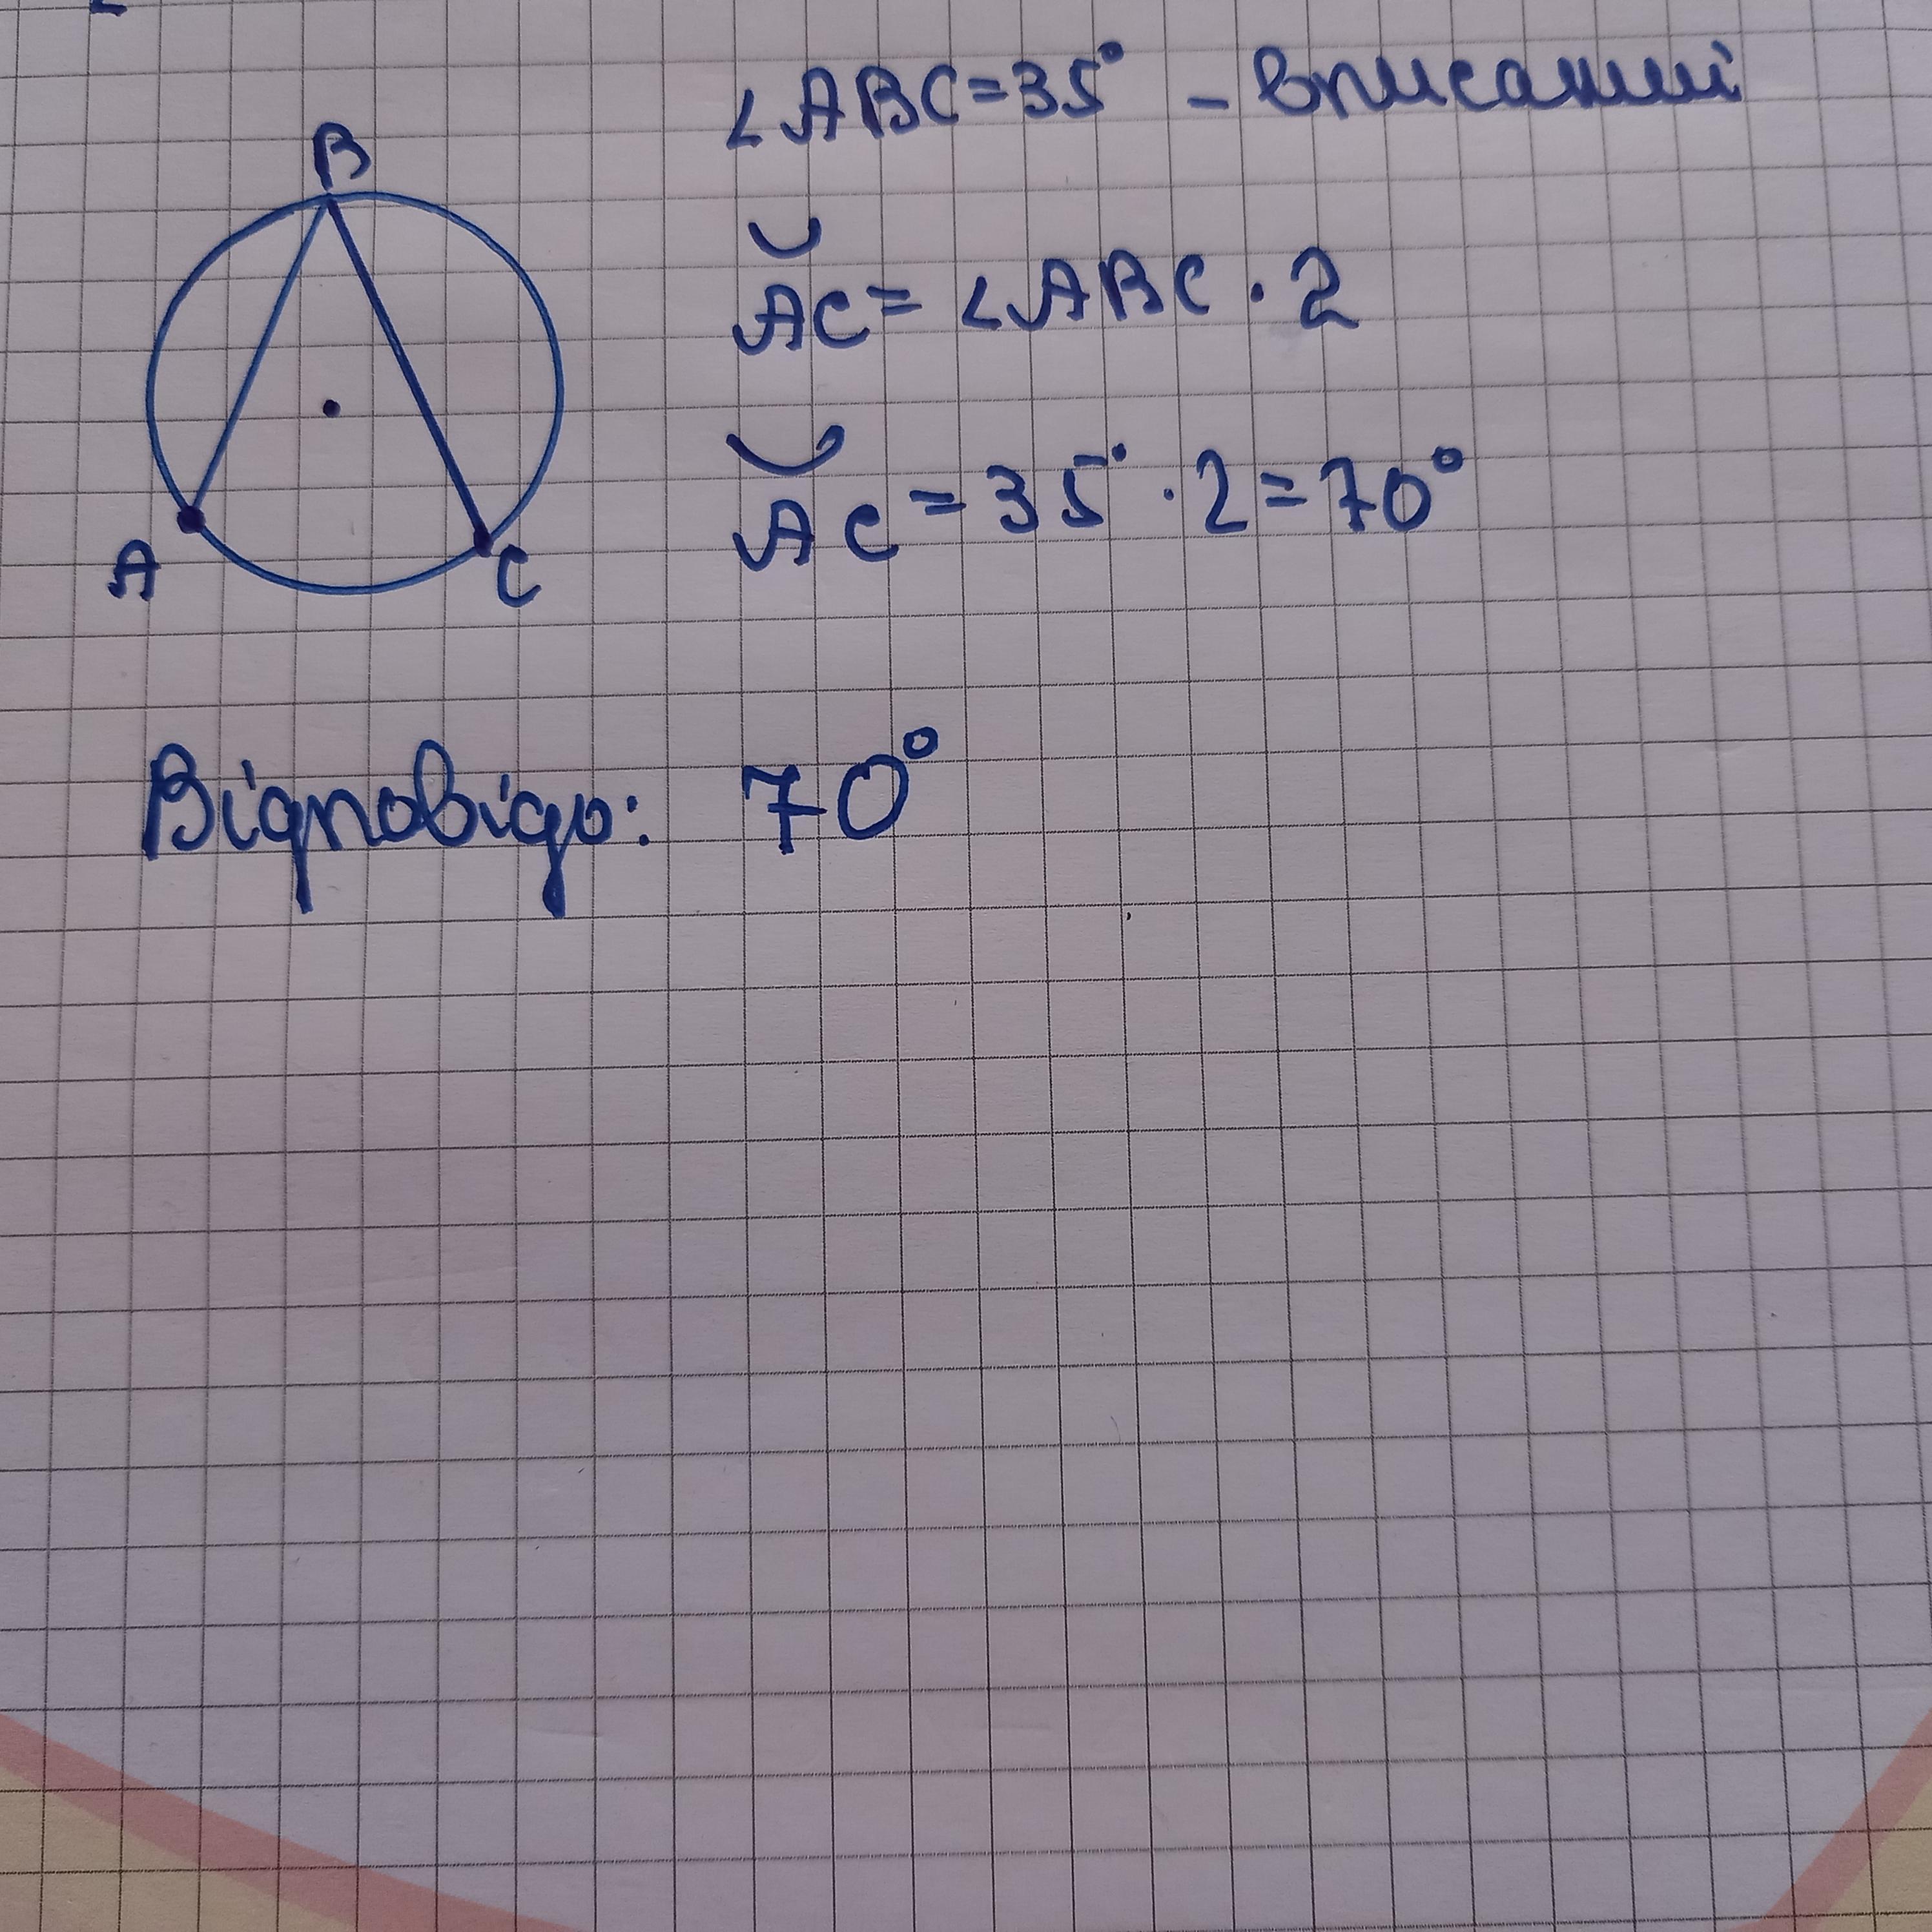 B
A
C
∠ABC=35° - вписаний
◡AC = ∠ABC · 2
◡AC = 35° · 2 = 70°
Відповідь: 70°